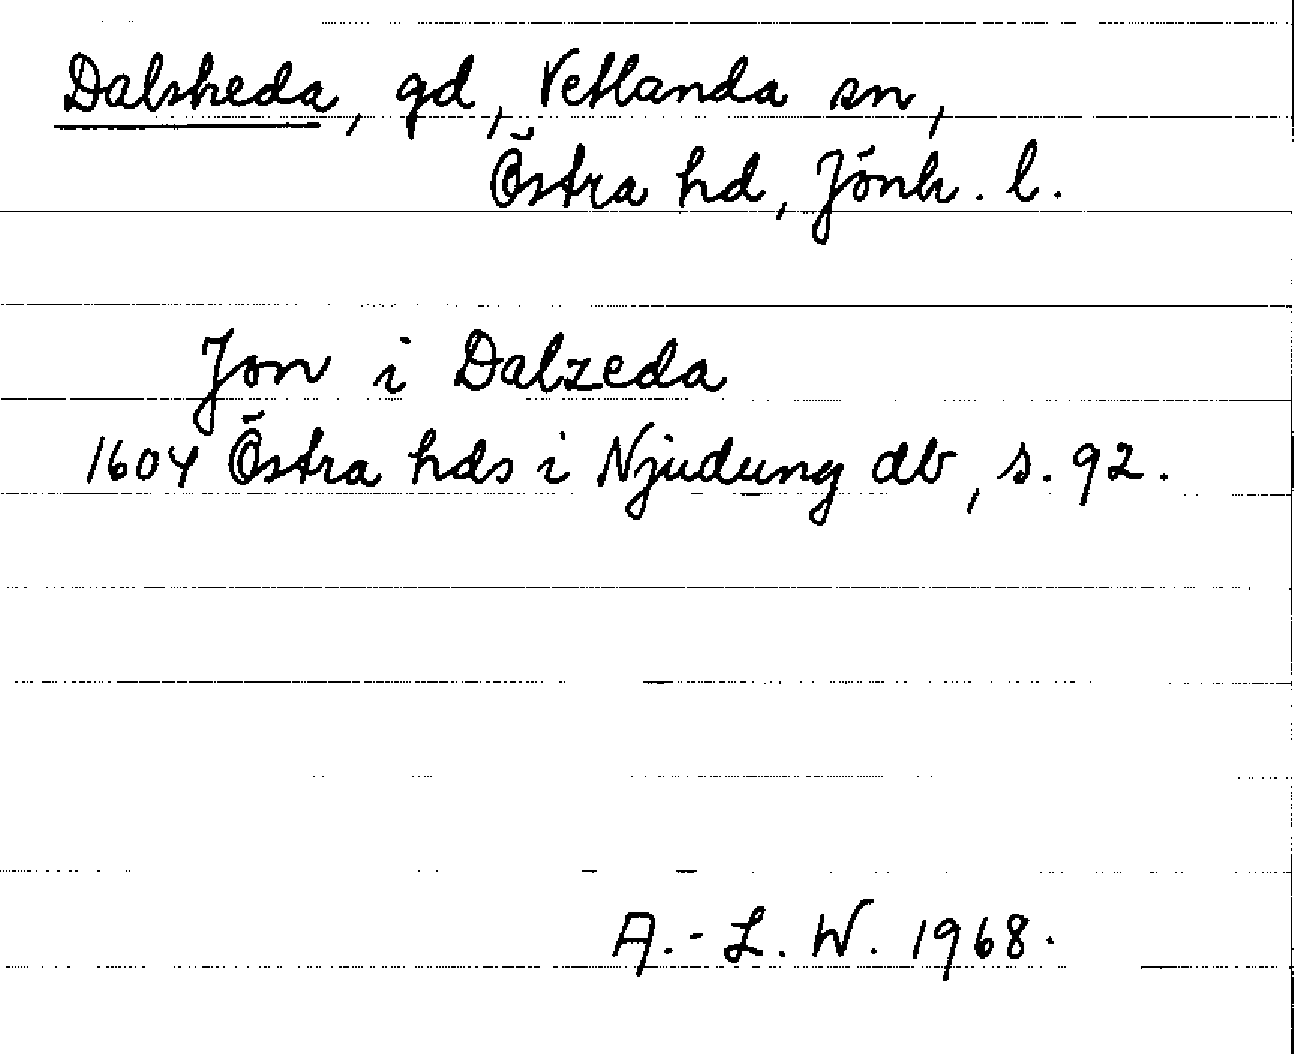 Dalsheda, gd, Vetlanda sn,
Östra hd, Jönk. l.
Jon i Dalzeda
1604 Östra hds i Njudung db, s. 92.
A.-L. W. 1968.